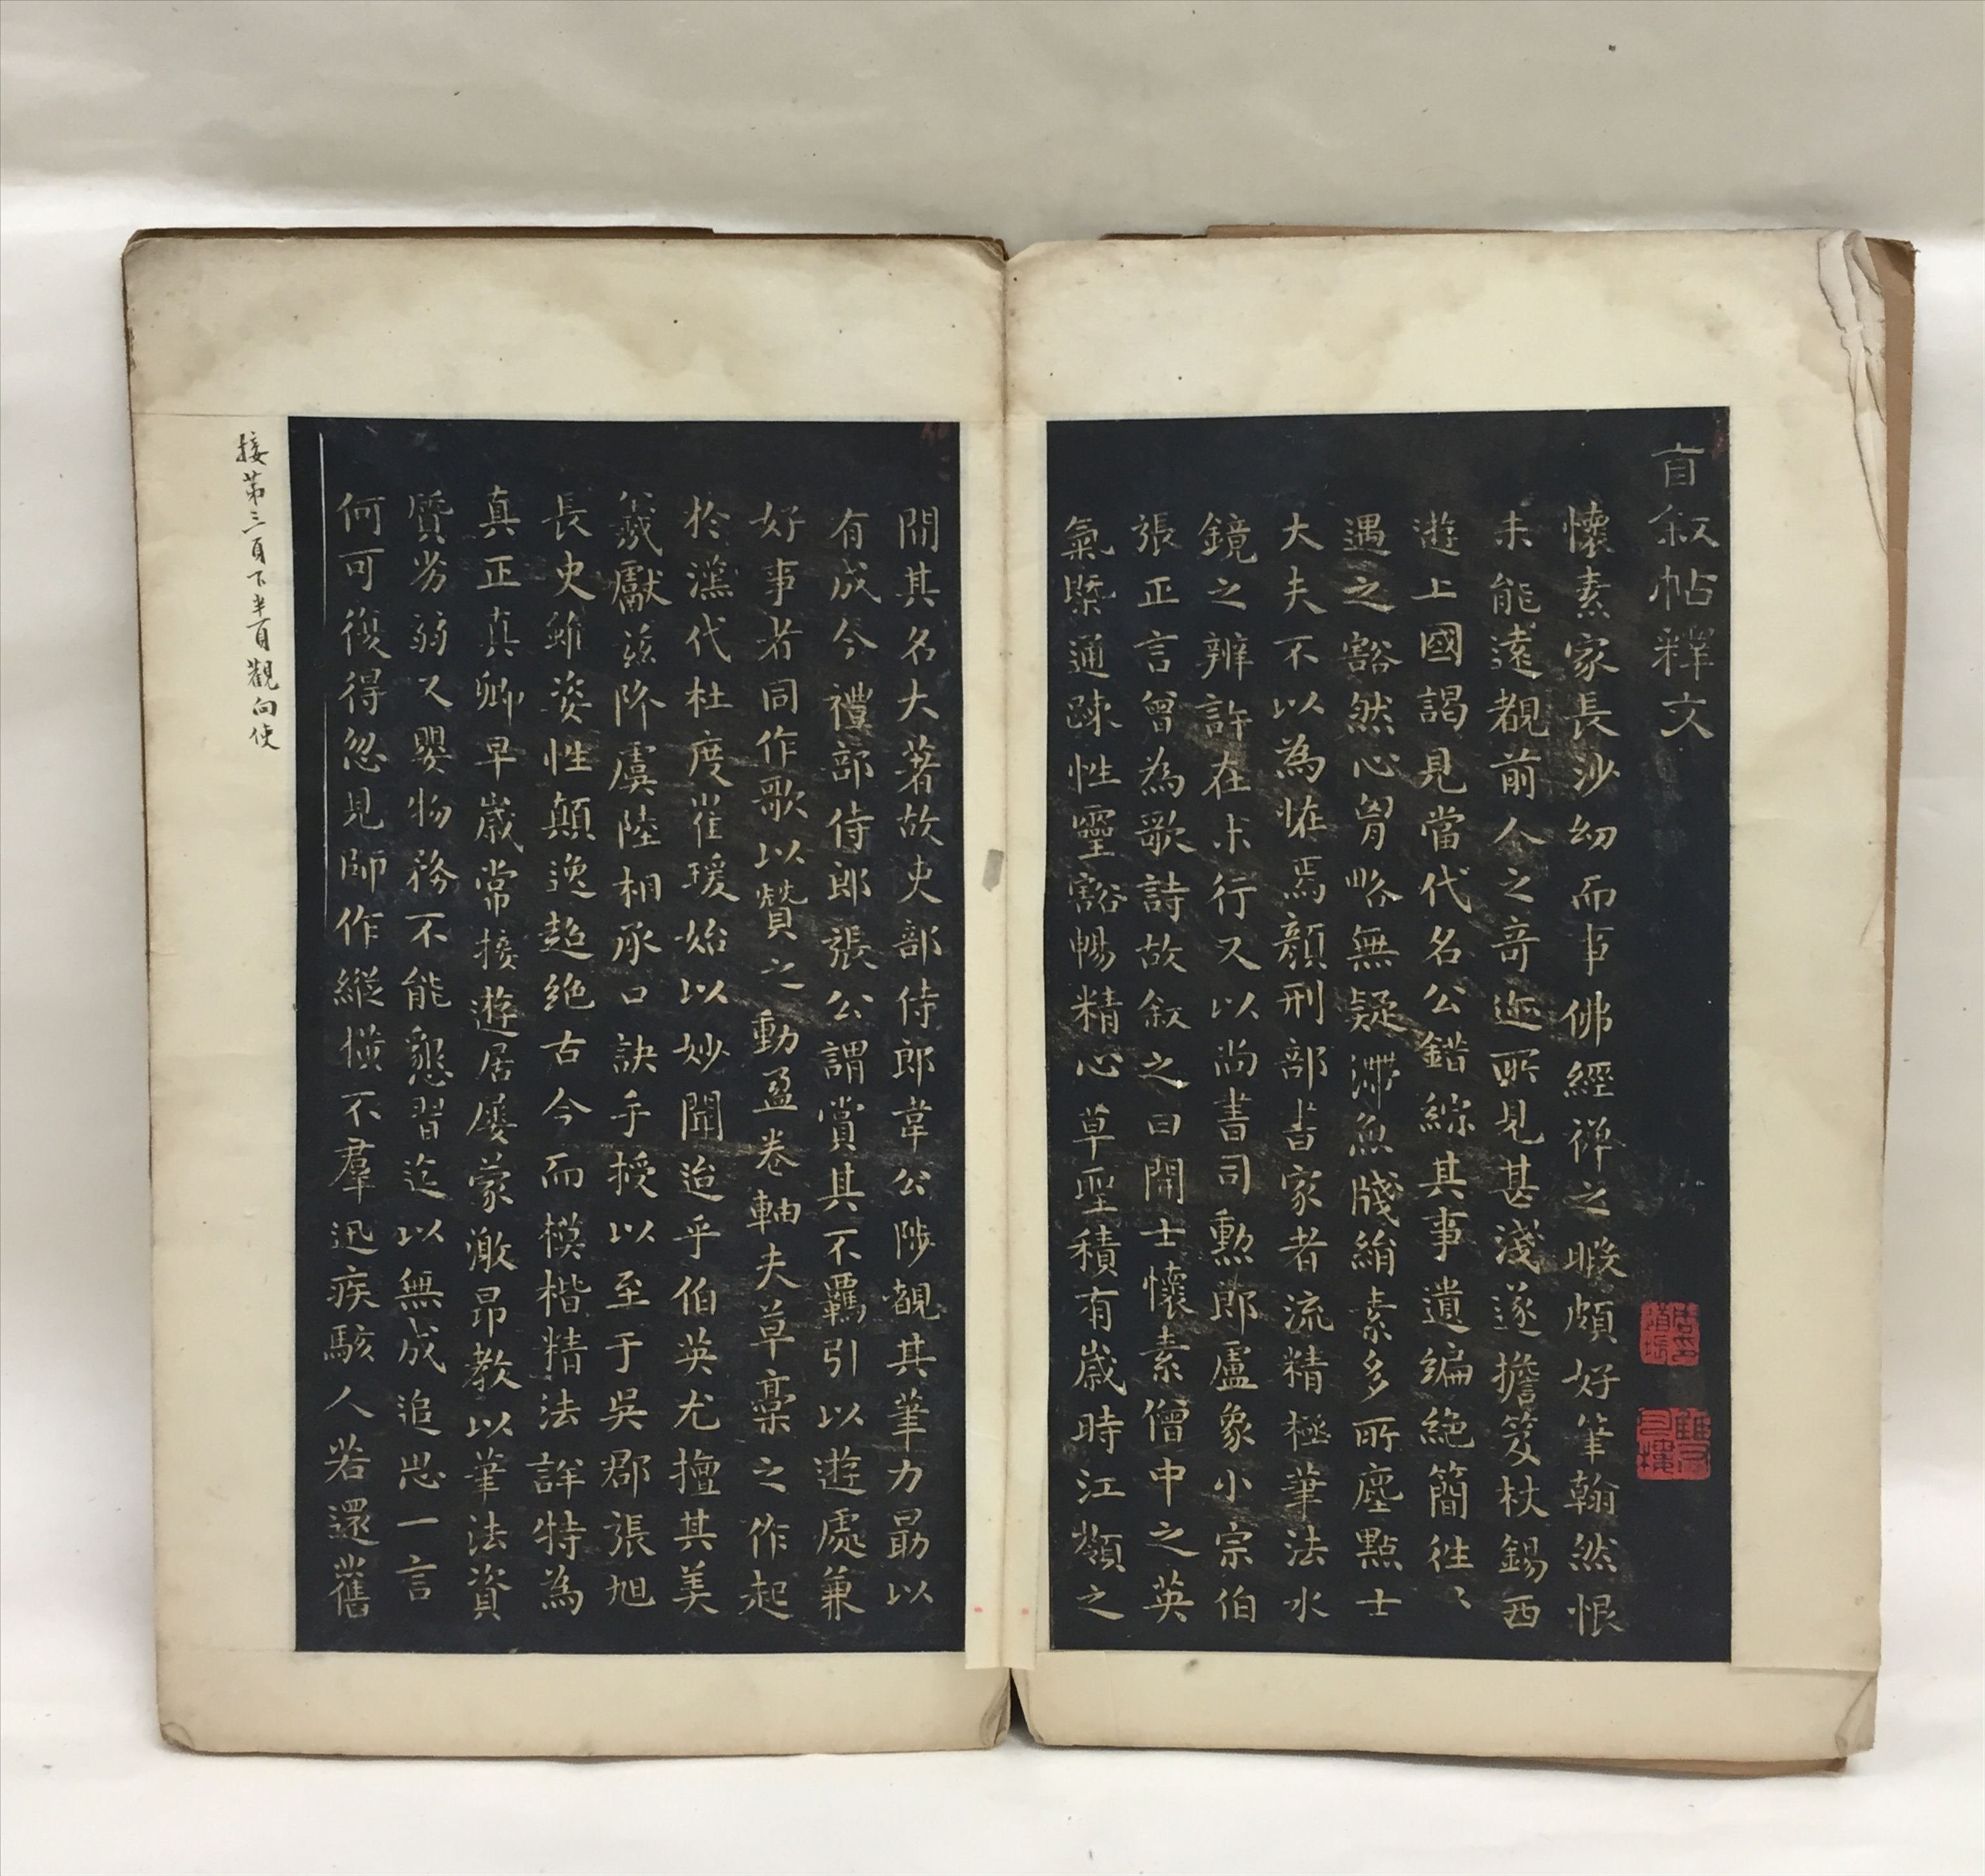 自叙帖釋文
懷素家長沙幼而事佛經禅之暇頗好筆翰然恨
未能遠覩前人之奇迹所見甚淺遂擔笈杖錫西
遊上國謁見當代名公錯綜其事遺編絶簡徃〻
遇之豁然心胷略無疑滯魚牋絹素多所塵點士
大夫不以為恠焉顏刑部書家者流精極筆法水
鏡之辨許在末行又以尚書司勲郎盧象小宗伯
張正言曾為歌詩故叙之曰開士懷素僧中之英
氣槩通疎性靈豁暢精心草聖積有歲時江嶺之
間其名大著故吏部侍郎韋公陟覩其筆力最以
有成今禮部侍郎張公謂賞其不羈引以遊處兼
好事者同作歌以贊之動盈卷軸夫草稾之作起
於漢代杜度崔瑗始以妙聞迨乎伯英尤擅其美
羲獻兹降虞陸相承口訣手授以至于吳郡張旭
長史雖姿性顛逸超絶古今而模楷精法詳特為
真正真卿早歲常接遊居屢蒙激昂教以筆法資
質劣弱又嬰物務不能懇習迄以無成追思一言
何可復得忽見師作縱横不羣迅疾駭人若還舊
接第三頁下半頁觀向使